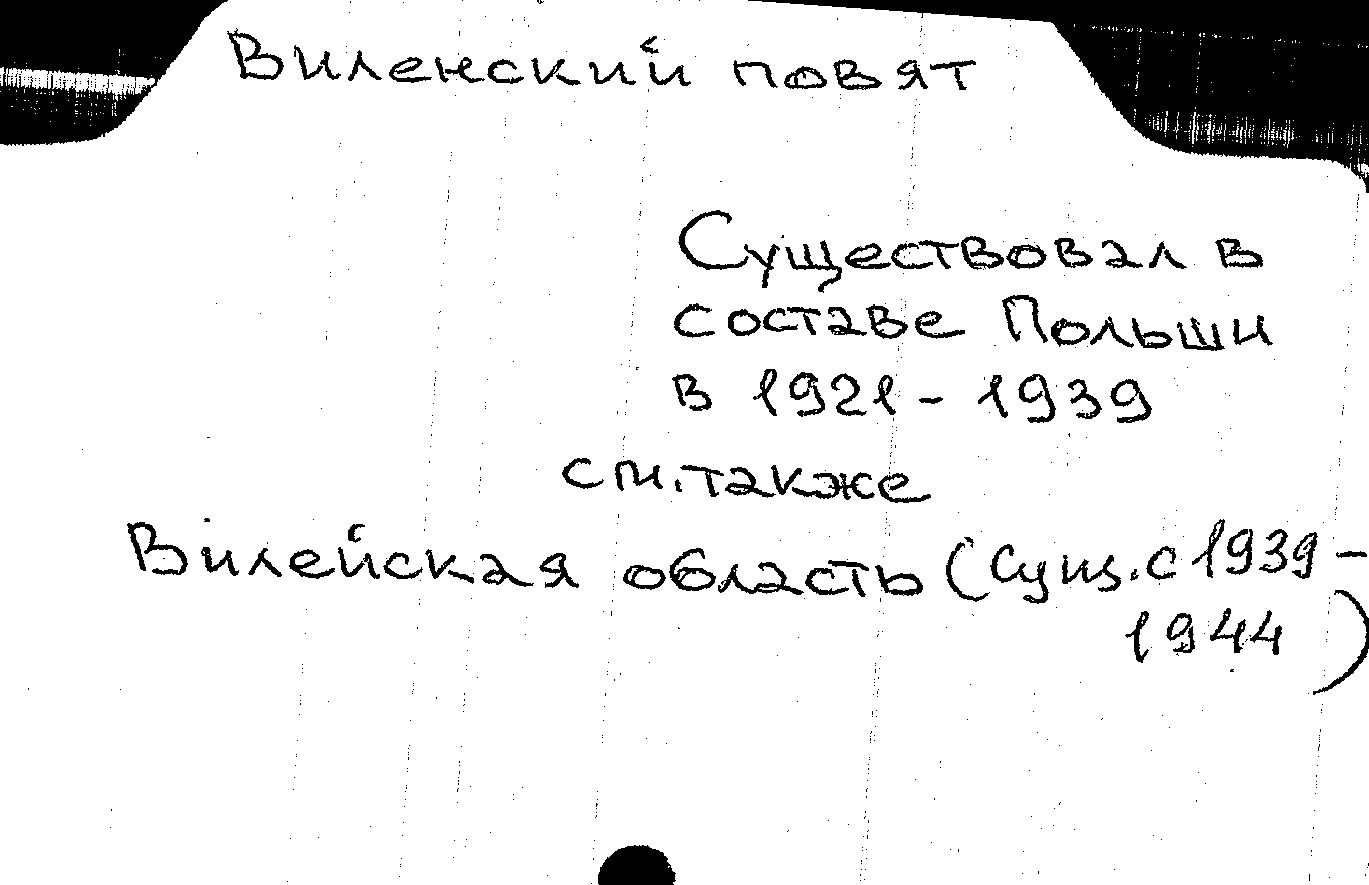 Виленский повят
Существовал в
составе Польши
в 1921 - 1939
см. также
Вилейская область (Сущ. с 1939 -
1944)